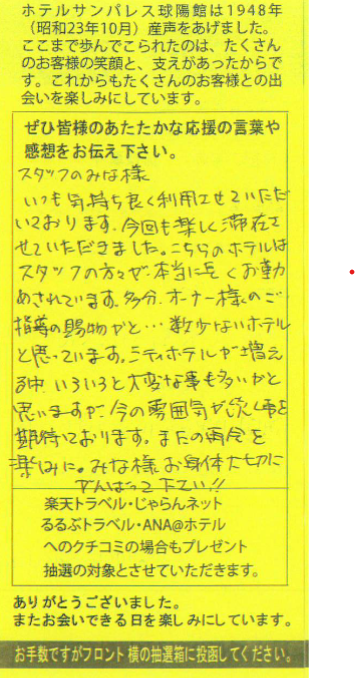 ホテルサンパレス球陽館は1948年
（昭和23年10月）産声をあげました。
ここまで歩んでこられたのは、たくさん
のお客様の笑顔と、支えがあったからで
す。これからもたくさんのお客様との出
会いを楽しみにしています。
ぜひ皆様のあたたかな応援の言葉や
感想をお伝え下さい。
スタッフのみな様
いつも気持ち良く利用させていただ
いております。今回も楽しく滞在さ
せていただきました。こちらのホテルは
スタッフの方々が本当に良くお勤
めされています。多分、オーナー様のご
指導の賜物かと…数少ないホテル
と思っています。シティホテルが増え
る中いろいろと大変な事も多いかと
思いますが今の雰囲気が続く事を
期待しております。またの再会を
楽しみに。みな様お身体大切に
がんばって下さい!!
楽天トラベル・じゃらんネット
るるぶトラベル・ANA@ホテル
へのクチコミの場合もプレゼント
抽選の対象とさせていただきます。
ありがとうございました。
またお会いできる日を楽しみにしています。
お手数ですがフロント横の抽選箱に投函してください。